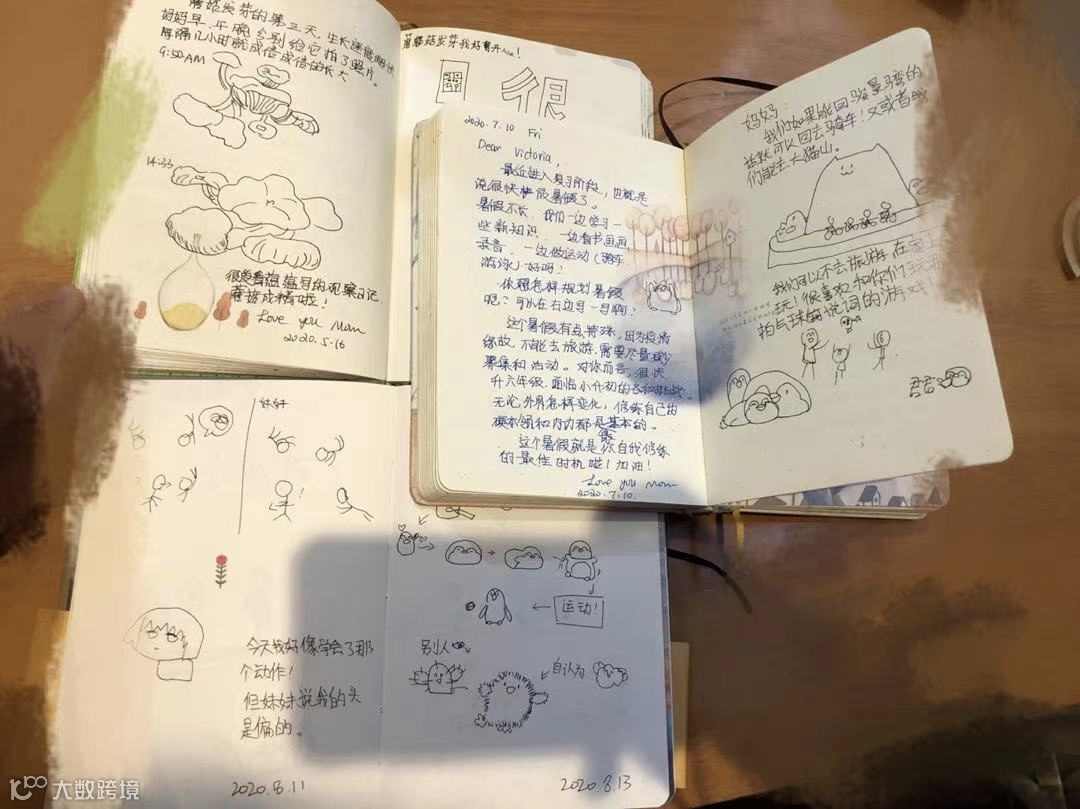 蘑菇发芽的第三天,生长速度很快
好好早、午、晚分别给它拍了照片。
每隔几小时就成倍成倍的长大
9:50AM
14:33
很爱看
的观察日记,
蘑菇成精啦!
Love you Mom
2020.5.16
蘑菇发芽我好开心!
很
2020.7.10 Fri
Dear Victoria,
最近进入复习阶段,也就是
说很快放暑假了。
暑假不长,我们一边学习一
些新知识,一边看书画画,
录音,一边做运动(骑车
游泳)好吗?
你想怎样规划暑假
呢?可以在右边写一写啊?
这个暑假有点特殊,因为疫情
缘故,不能去旅游,需要尽量减少
聚集和活动。对你而言,很快
升六年级,面临小升初的各种挑战。
无论外界怎样变化,修炼自己的
本领和内功都是最基本的。
这个暑假就是你自我修炼
的最佳时机啦!加油!
Love you Mom
2020.7.10.
妈妈:
我们如果能回
的
话就可以回去骑车!又或者我
们能去大猫山。
我们可以不去旅游,在家
玩!很喜欢和你们玩
拍气球
说词的游戏!
君君
妹妹
今天我好像学会了那
个动作!
但妹妹说我的头
是偏的。
2020.8.11
运动!
别人
自认为
2020.8.13
大数跨境